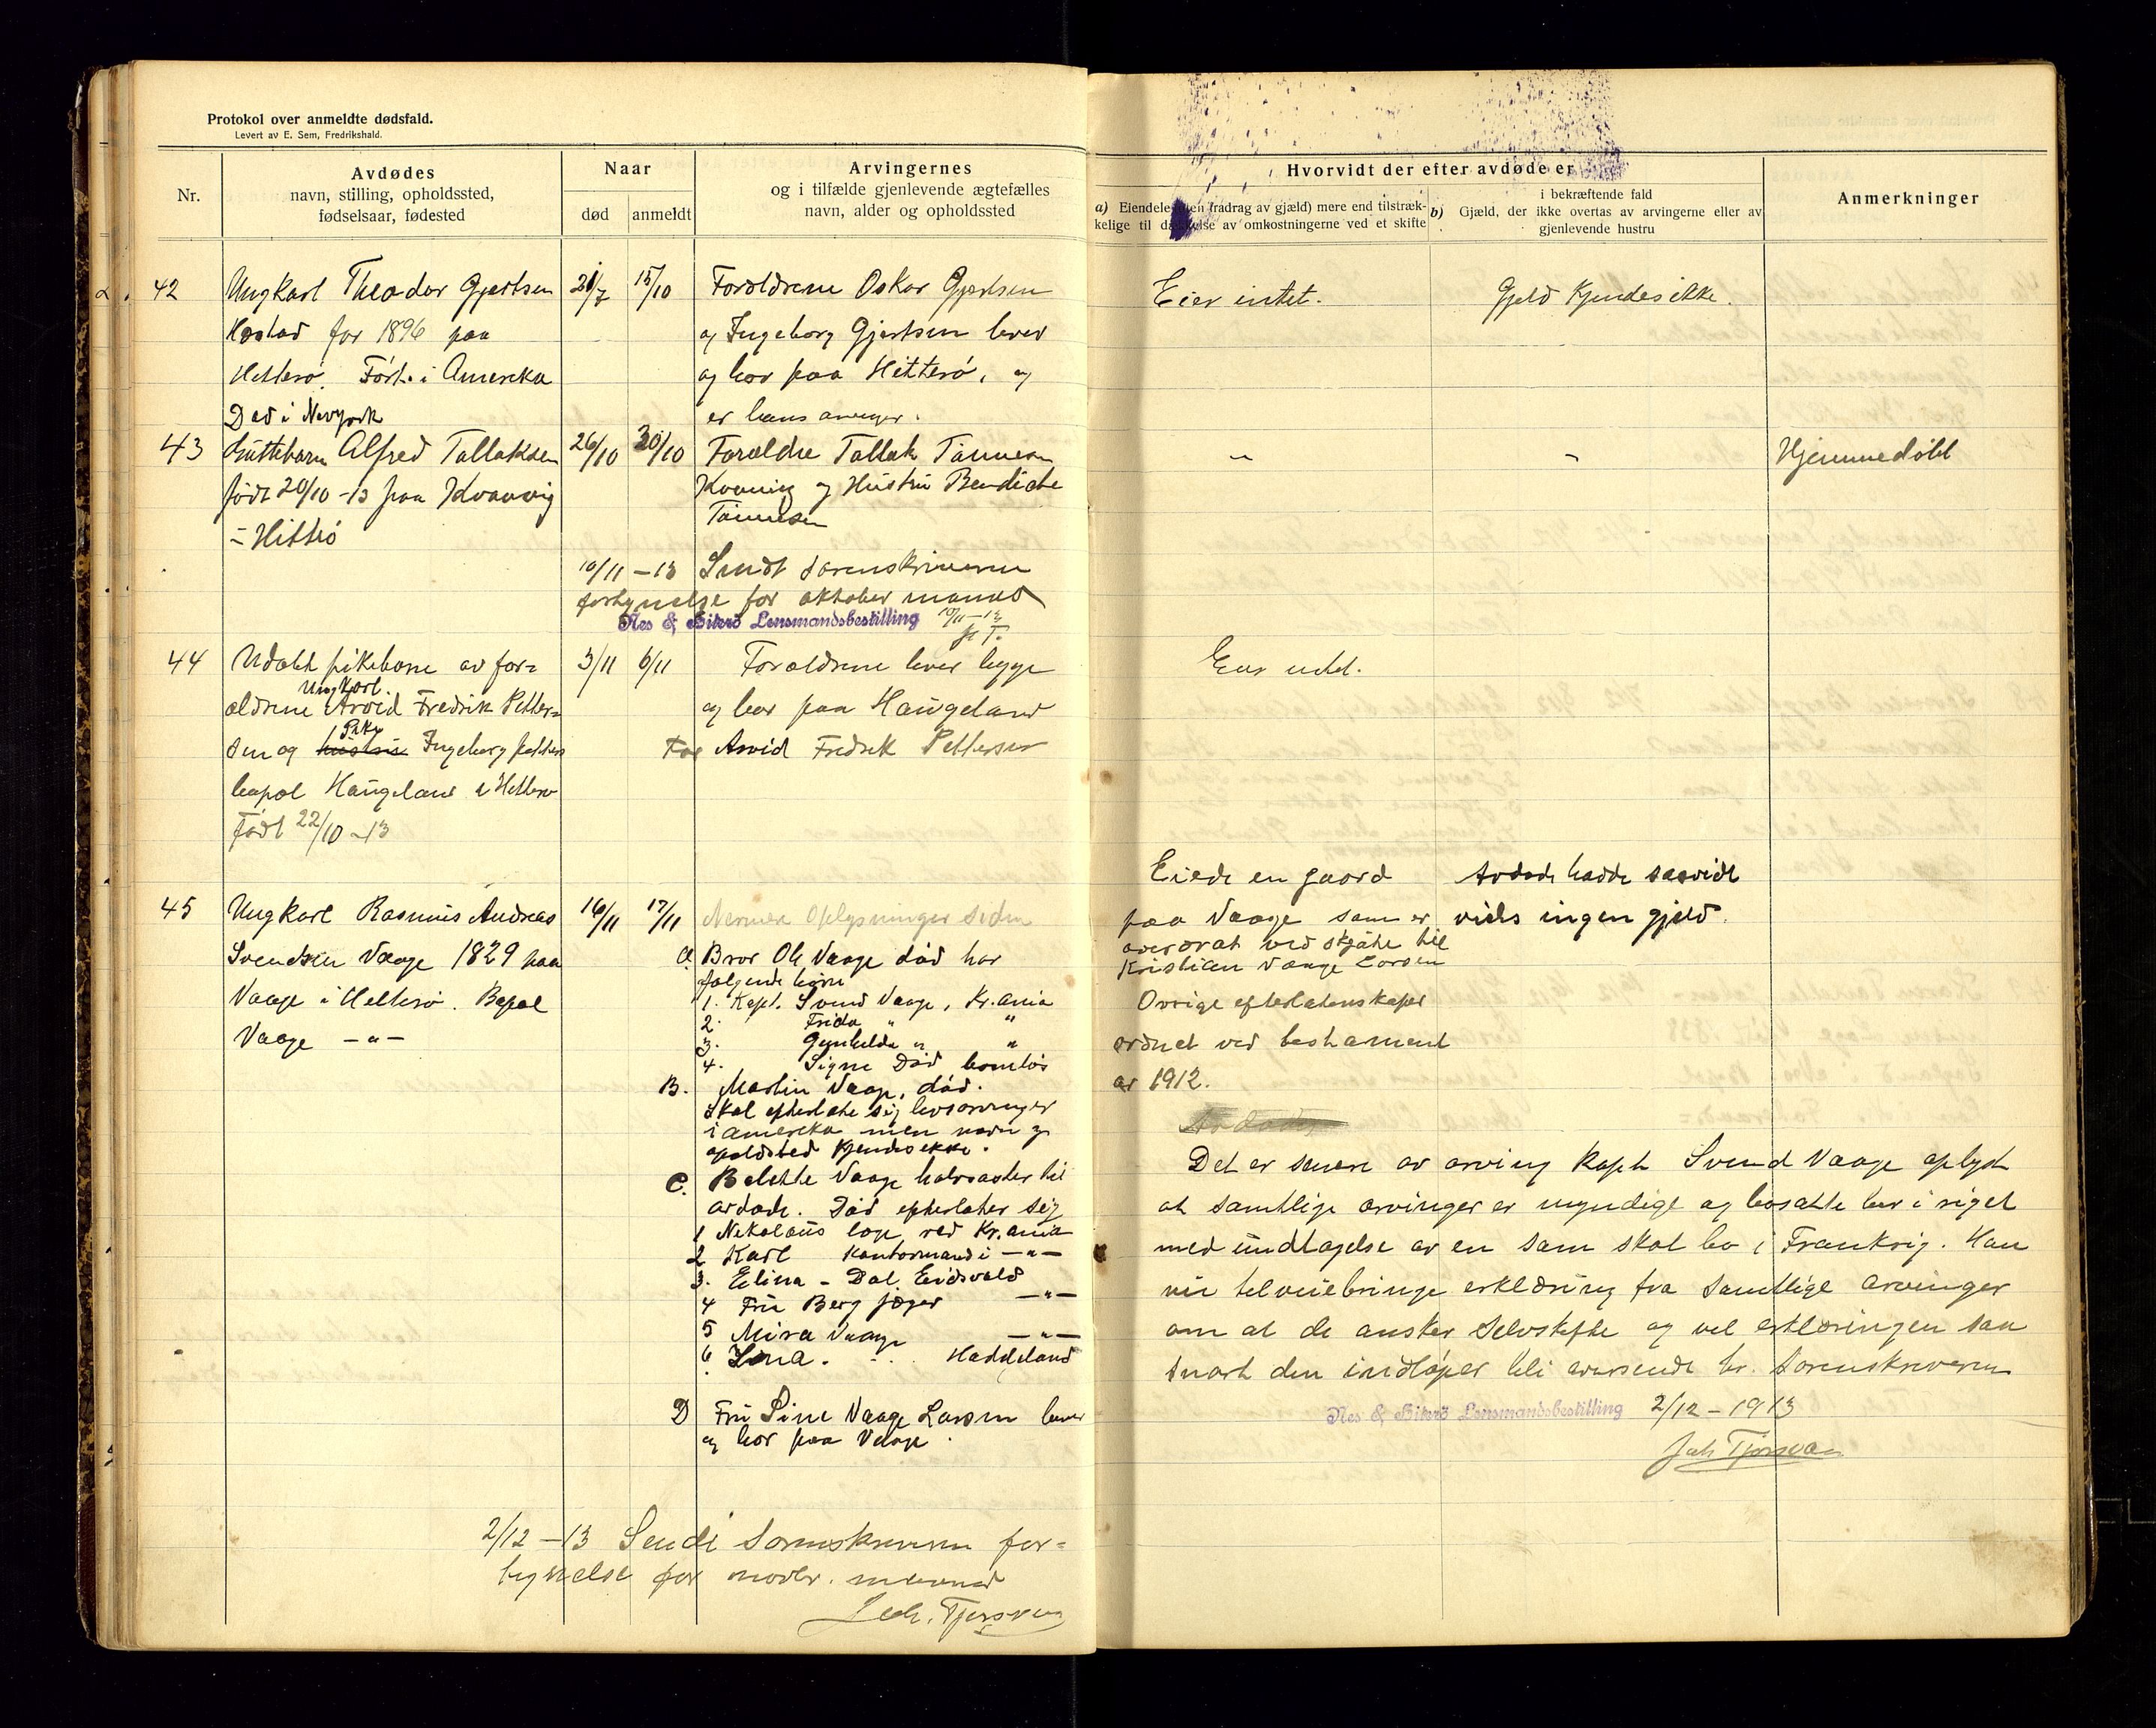 Protokol over anmeldte dødsfald.
Levert av E. Sem, Fredrikshald.
Nr.
Avdødes
navn, stilling, opholdssted,
fødselsaar, fødested
Naar
død
anmeldt
Arvingernes
og i tilfælde gjenlevende ægtefælles
navn, alder og opholdssted
Hvorvidt der efter avdøde er
a) Eiendele (uten fradrag av gjæld) mere end tilstræk-
kelige til dækkelse av omkostningerne ved et skifte
i bekræftende fald
b) Gjæld, der ikke overtas av arvingerne eller av
gjenlevende hustru
Anmerkninger
42
Ungkarl Theodor Gjertsen
for 1896 paa
Hitterø. Født i Amerika
Død i Newyork
21/7
15/10
Forældrene Oskar Gjertsen
og Ingeborg Gjertsen lever
og bor paa Hitterø, og
er hans arvinger.
Eier intet.
Gjeld kjendes ikke.
43
Guttebarn Alfred Tallaksen
født 20/10 -13 paa Kvanvig
- Hitterø
26/10
30/10
Forældre Tallak Tønnesen
Kvanvig og Hustru Bendicte
Tønnesen
"
"
Hjemmedøbt
10/11 - 13 Sendt sorenskriveren
fortegnelse for oktober maaned
Nes & Hiterø Lensmandsbestilling 10/11-13
J. T.
44
Udøbt pikebarn av for-
ældrene Ungkarl Arvid Fredrik Petter-
sen og hustru Pike Ingeborg Petters
bopæl Haugeland i Hitterø
Født 22/10 -13
3/11
6/11
Forældrene lever begge
og bor paa Haugeland
Far Arvid Fredrik Pettersen
Eier intet.
45
Ungkarl Rasmus Andreas
Svendsen Vaage 1829 paa
Vaage i Hitterø. Bopæl
Vaage -"-
16/11
17/11
Nermere Oplysninger siden
a Bror Ole Vaage død har
følgende børn
1. Kapt. Svend Vaage, Kr.ania
2. Frida " "
3. Gunhilda " "
4. Signe Død barnløs
B. Martin Vaage, død.
Skal efterlate sig livsarvinger
i amerika men navn og
opholdsted kjendes ikke.
C. Belitte Vaage halvsøster til
avdøde. Død efterlater sig
1 Nikolaus ved Kr.ania
2 Karl kontormand i -"-
3. Elina - Dal Eidsvold
4 Fru Berg Jæger -"-
5 Mira Vaage -"-
6 Lina. . . . Haddeland
D Fru Sine Vaage Larsen lever
og bor paa Vaage.
Eiede en gaard
paa Vaage som er
overdrat ved skjøte til
Kristian Vaage Larsen
Øvrige efterlatenskaper
ordnet ved testament
av 1912.
Avdøde
Avdøde hadde saavidt
vides ingen gjeld.
Det er senere av arving kapt Svend Vaage oplyst
at samtlige arvinger er myndige og bosatte her i riget
med undtagelse av en som skal bo i Frankrig. Han
vil tilveiebringe erklæring fra samtlige arvinger
om at de ønsker selvskifte og vil erklæringen saa
snart den indløper bli oversendt hr. Sorenskriveren
Nes & Hiterø Lensmandsbestilling 2/12 - 1913
Joh Tjørsvaag
2/12 - 13 Sendt Sorenskriveren for-
tegnelse for novbr. maaned
Joh. Tjørsvaag